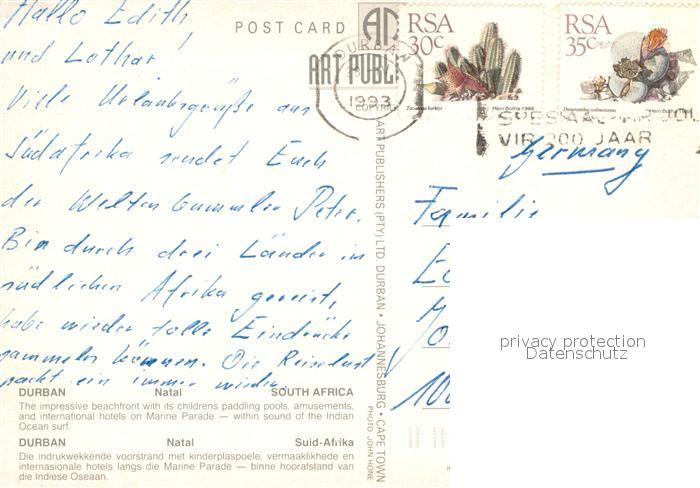 Hallo Edith
und Lothar!
Viele Urlaubsgrüße aus
Südafrika sendet Euch
der Weltenbummler Peter.
Bin durch drei Länder im
südlichen Afrika gereist,
habe wieder tolle Eindrücke
sammeln können. Die Reiselust
packt ein immer wieder.
DURBAN Natal SOUTH AFRICA
The impressive beachfront with its childrens paddling pools, amusements,
and international hotels on Marine Parade — within sound of the Indian
Ocean surf.
DURBAN Natal Suid-Afrika
Die indrukwekkende voorstrand met kinderplaspoele, vermaaklikhede en
internasionale hotels langs die Marine Parade — binne hoorafstand van
die Indiese Oseaan.
POST CARD
ART PUBLI
COPYRIG
ART PUBLISHERS (PTY) LTD. DURBAN • JOHANNESBURG • CAPE TOWN
PHOTO: JOHN HONE
DURBAN
1993
RSA
30c
Hein Botha 1988
RSA
35c
Hein Botha
VIR 300 JAAR
Germany
Familie
privacy protection
Datenschutz